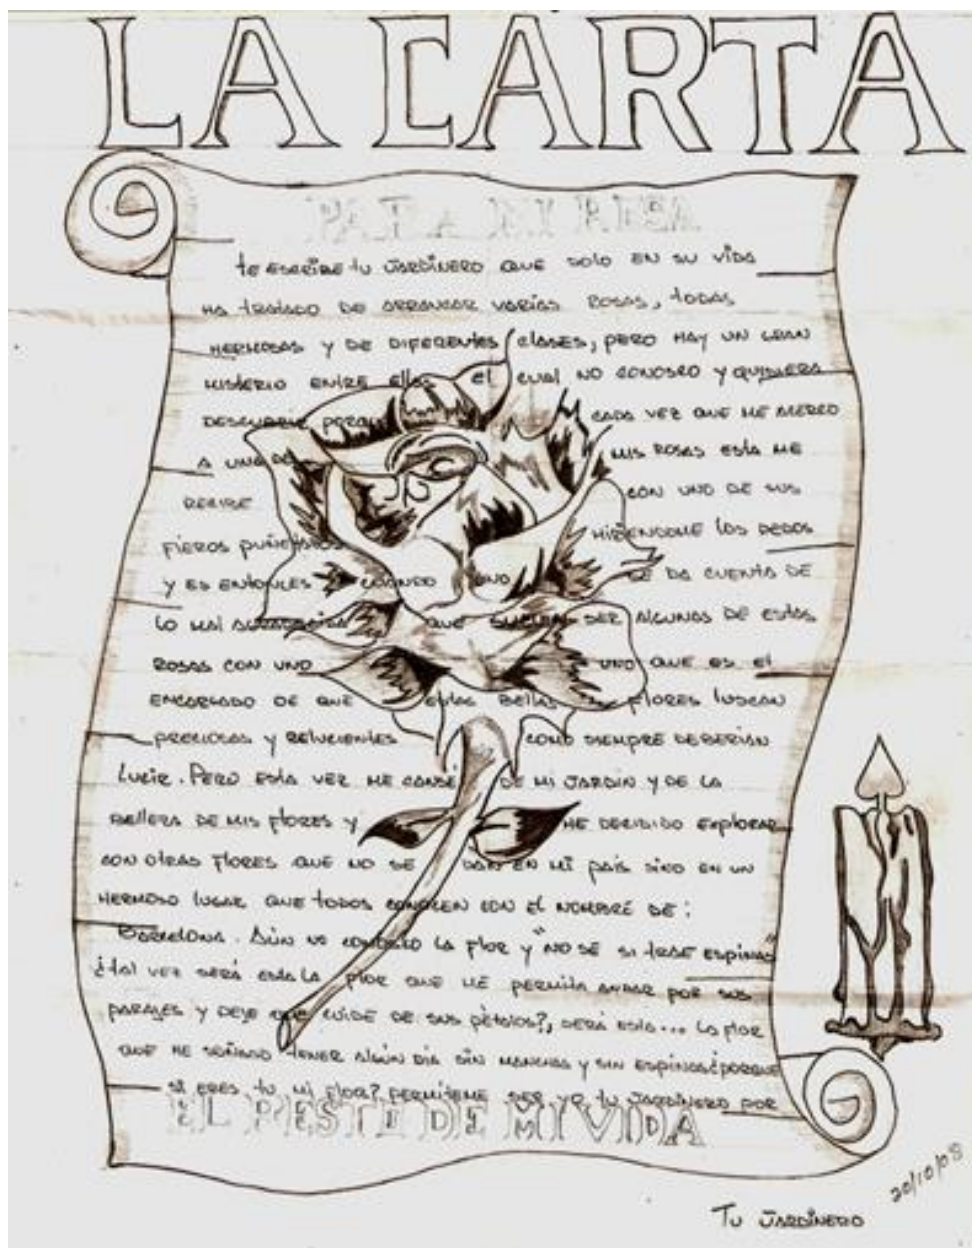 LA CARTA
PARA MI ROSA
te escribe tu JARDINERO QUE solo EN SU VIDA
HA tratado DE ARRANCAR VARIAS ROSAS, todas
HERMOSAS Y DE DIFERENTES clases, PERO HAY UN GRAN
MISTERIO ENTRE Ellas El cual NO CONOSCO Y QUISIERA
DESCUBRIR PORQUE CADA VEZ QUE ME ACERCO
A UNA DE MIS ROSAS Esta ME
RECIBE CON UNO DE SUS
FIEROS HIRIENDOME los DEDOS
Y ES ENTONCES CUANDO UNO SE DA CUENTA DE
LO MAL AGRADECIDA QUE SUELEN SER ALGUNAS DE Estas
ROSAS CON UNO UNO QUE ES El
ENCARGADO DE QUE Estas Bellas FLORES luscan
PRECIOSAS Y RELUCIENTES COMO SIEMPRE DEBERIAN
Lucir. PERO Esta VEZ ME CANSÉ DE MI JARDIN Y DE LA
BELLEZA DE MIS FLORES Y HE DECIDIDO Explorar
CON OTRAS FLORES QUE NO SE DAN EN MI PAIS SINO EN UN
HERMOSO LUGAR QUE todos CONOCEN CON El NOMBRE DE:
BARCELONA. AÚN NO CONOSCO LA FLOR Y "NO SE SI TRAE ESPINAS"
¿tal VEZ SERÁ Esta LA FLOR QUE ME PERMITA ANDAR POR SUS
PARAJES Y DEJE QUE CUIDE DE SUS PÉTALOS?, SERÁ Esta... LA FLOR
QUE HE SOÑADO TENER ALGÚN DIA SIN MANCHAS Y SIN ESPINAS ¿PORQUE
SI ERES TU MI FLOR? PERMITEME SER YO TU JARDINERO POR
EL RESTO DE MI VIDA
20/10/08
TU JARDINERO